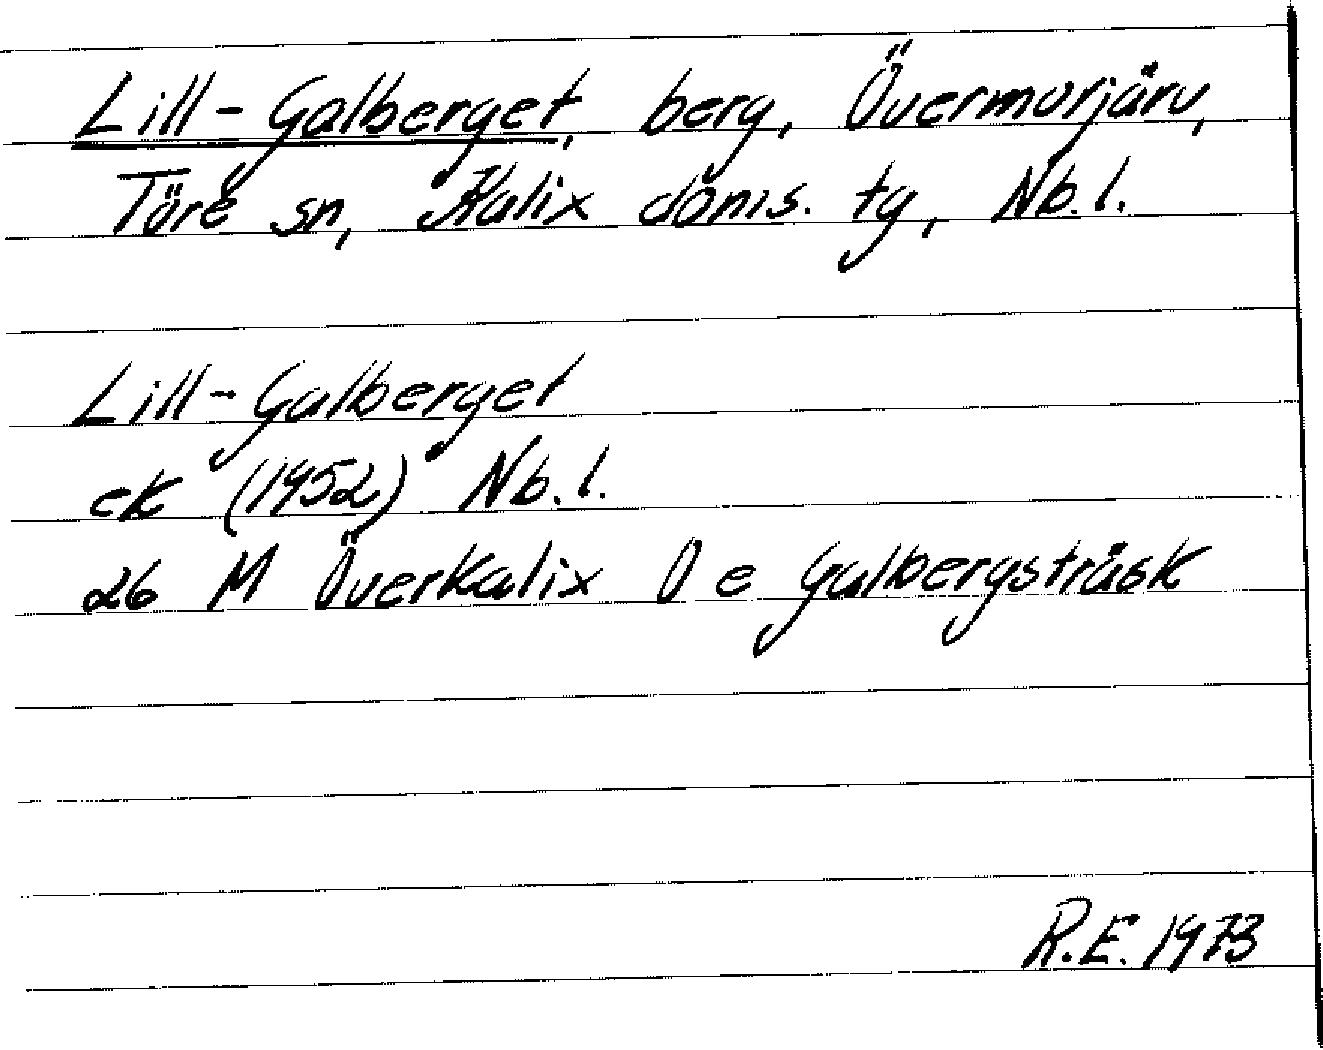 Lill-Galberget, berg, Övermorjärv,
Töre sn, Kalix döms. tg, Nb.l.
Lill-Galberget
ek (1952) Nb.l.
26 M Överkalix O e Galbergsträsk
R.E. 1973